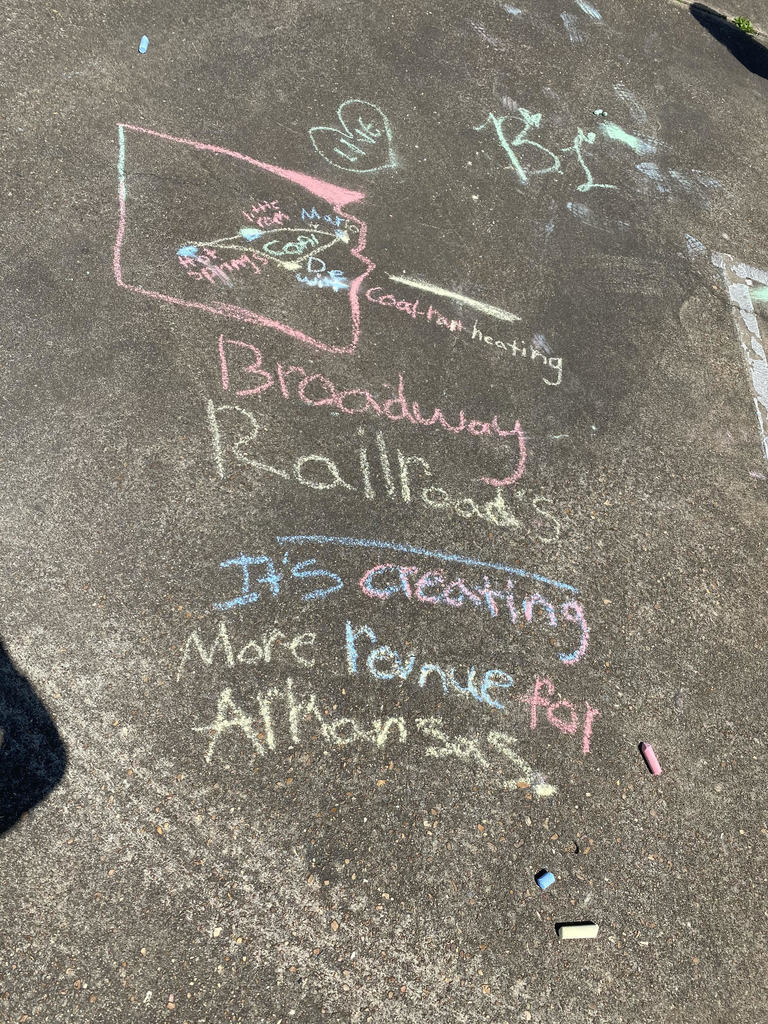 LINE
B.L
little
rock
Mario
Coal
Hot
Spring
De
wit
Coal-ran heating
Broadway
Railroad's
It's creating
More rovnue for
Arkansas